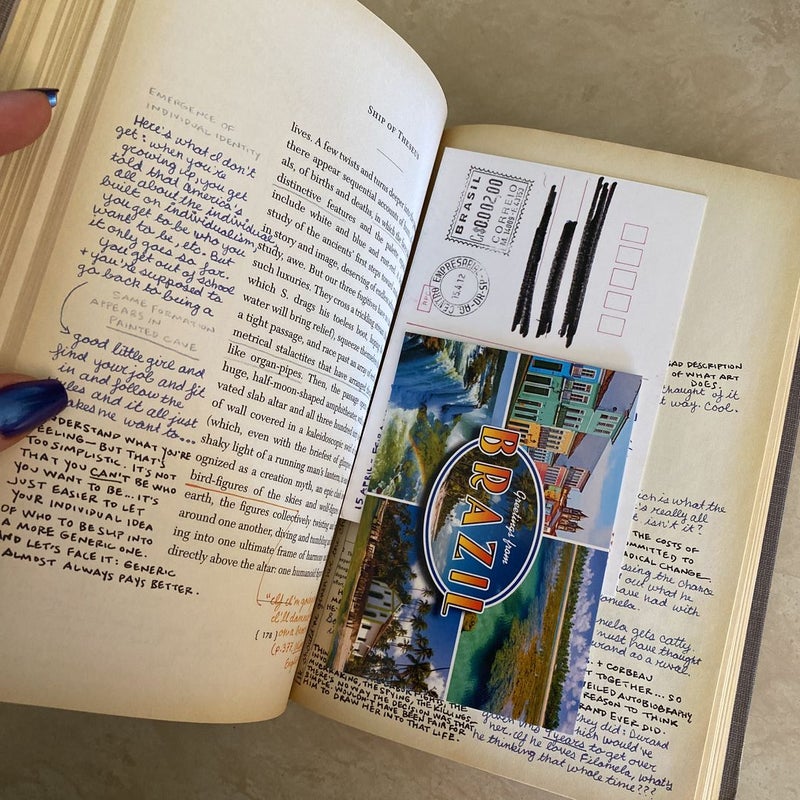 SHIP OF THESEUS
EMERGENCE OF
INDIVIDUAL IDENTITY
Here's what I don't
get: when you're
growing up, you get
told that America's
all about the individual,
built on individualism,
you get to be who you
want to be, etc. But
it only goes so far.
You get out of school
+ you're supposed to
go back to being a
SAME FORMATION
APPEARS IN
PAINTED CAVE
good little girl and
find your job and fit
in and follow the
rules and it all just
makes me want to...
UNDERSTAND WHAT YOU'RE
FEELING—BUT THAT'S
TOO SIMPLISTIC. IT'S NOT
THAT YOU CAN'T BE WHO
YOU WANT TO BE... IT'S
JUST EASIER TO LET
YOUR INDIVIDUAL IDEA
OF WHO TO BE SLIP INTO
A MORE GENERIC ONE.
AND LET'S FACE IT: GENERIC
ALMOST ALWAYS PAYS BETTER.
lives. A few twists and turns deeper
there appear sequential accounts of
als, of births and deaths, in which the
distinctive features and the palette
include white and blue and rust
study of the ancients' first steps
in story and image, deserving of
study, awe. But our three fugitives have
such luxuries. They cross a trickling
which S. drags his toeless boot,
water will bring relief), squeeze themselves
a tight passage, and race past an array of
metrical stalactites that have arranged
like organ-pipes. Then, the passage
huge, half-moon-shaped amphitheater,
vated slab altar and all three hundred
of wall covered in a kaleidoscopic
(which, even with the briefest of
shaky light of a running man's lantern,
ognized as a creation myth, an epic
bird-figures of the skies and wolf-figures
earth, the figures collectively twisting
around one another, diving and tumbling
ing into one ultimate frame of
directly above the altar: one humanoid
"If I'm going
I'll
on a
(p. 377,
[ 178 ]
BRASIL
CORREIO
CENTRO EMPRESARIAL
15.4.12
15 APRIL
Greetings from
BRAZIL
DESCRIPTION
OF WHAT ART
DOES.
thought of it
way. Cool.
which is what the
it's really all
isn't it?
THE COSTS OF
COMMITTED TO
RADICAL CHANGE.
missing the chance
out what he
have had with
Filomela.
gets catty.
must have thought
Durand as a rival.
+ CORBEAU
TOGETHER... SO
VEILED AUTOBIOGRAPHY
REASON TO THINK
DURAND EVER DID.
they did: Durand
which would've
given him 9 years to get over
her. If he loves Filomela, what's
he thinking that whole time???
THE SPYING, THE KILLINGS
THERE'S NO WAY THE DECISION WAS THAT
SIMPLE. WOULDN'T HAVE BEEN FAIR FOR
HIM TO DRAW HER INTO THAT LIFE.